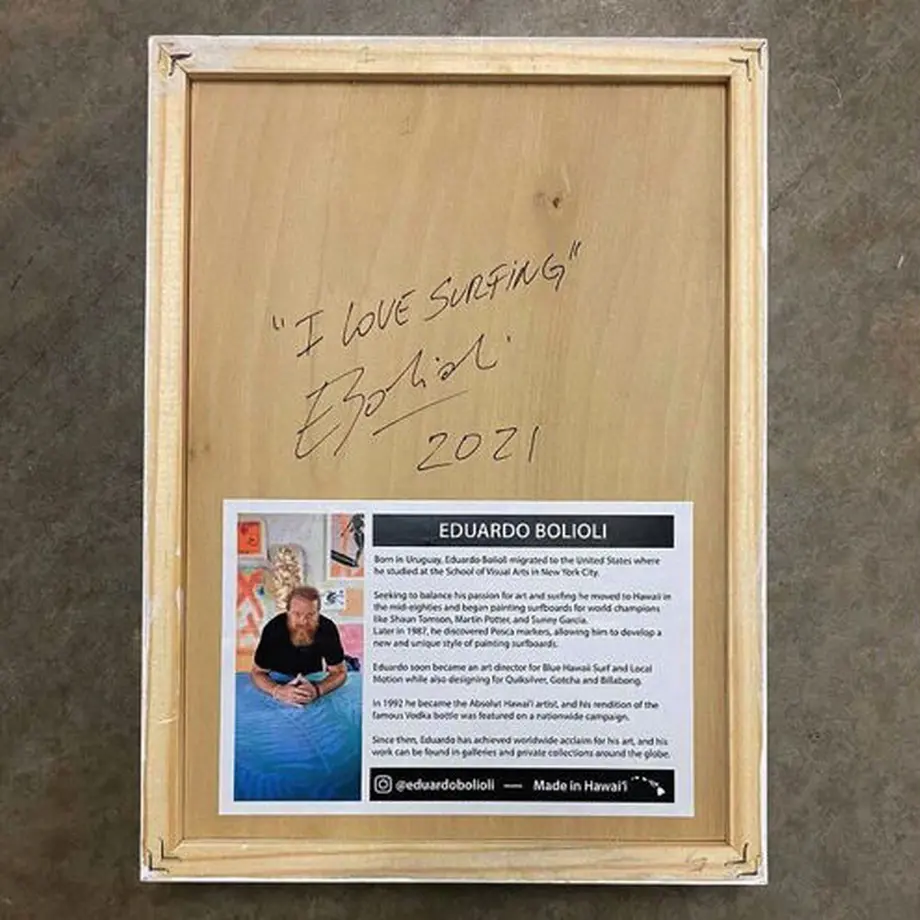 "I LOVE SURFING"
EBolioli
2021
EDUARDO BOLIOLI
Born in Uruguay, Eduardo Bolioli migrated to the United States where
he studied at the School of Visual Arts in New York City.
Seeking to balance his passion for art and surfing he moved to Hawaii in
the mid-eighties and began painting surfboards for world champions
like Shaun Tomson, Martin Potter, and Sunny Garcia.
Later in 1987, he discovered Posca markers, allowing him to develop a
new and unique style of painting surfboards.
Eduardo soon became an art director for Blue Hawaii Surf and Local
Motion while also designing for Quiksilver, Gotcha and Billabong.
In 1992 he became the Absolut Hawai'i artist, and his rendition of the
famous Vodka bottle was featured on a nationwide campaign.
Since then, Eduardo has achieved worldwide acclaim for his art, and his
work can be found in galleries and private collections around the globe.
@eduardobolioli — Made in Hawai'i